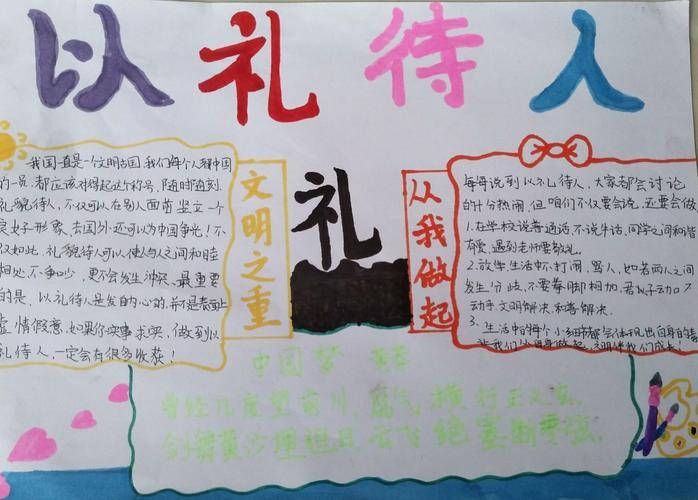 以礼待人
我国一直是一个文明古国,我们每个人都是中国
的一员,都应该对得起这个称号,随时随刻
礼貌待人,不仅可以在别人面前竖立一个
良好形象,去国外还可以为中国争光!不
仅如此,礼貌待可以使人与人之间和睦
相处,不争吵,更不会发生冲突。最重要
的是,以礼待人是发自内心的,并不是表面上
虚情假意,如果你实事求实,做到以
礼待人,一定会有很多收获!
文明之重
礼
从我做起
每每说到以礼待人,大家都会讨论
的十分热闹,但咱们不仅要会说,还要会做
1.在学校说普通话,不说失话,同学之间和谐
有爱,遇到老师要敬礼。
2.放学生活中不打闹,骂人,如若两人之间
发生分歧,不要拳脚相加,君子动口不
动手,文明解决,和善解决.
3.生活中的每个小细节都会体现出自身的素
让我们从自身做起,文明伴我们成长!
中国梦
曾经几度望前川,腐气横行正义寒。
剑舞黄沙理旭日,云飞绝塞断